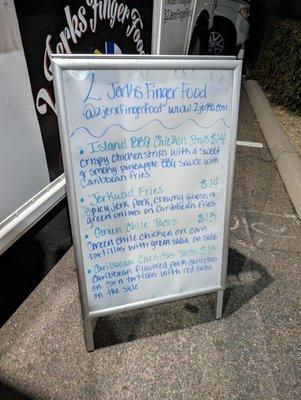 Jerks Finger Food
2 Jerks Finger Food
@2jerksfingerfood www.2jerks.com
• Island BBQ Chicken Strips $14
crispy chicken strips with a sweet
& smoky pineapple BBQ sauce with
Caribbean fries
• Jerkwad Fries $14
spicy jerk pork, creamy queso, &
green onions on Caribbean fries
• Green Chile Tacos $13
Green chile chicken on corn
tortillas with green salsa on side
• Caribbean Carnitas Tacos $13
Caribbean flavored pork carnitas
on corn tortillas with red salsa
on the side